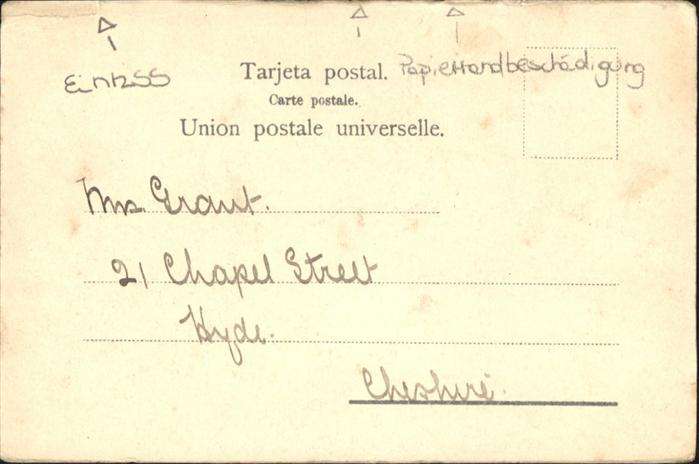 Einriss
Tarjeta postal. Papierrandbeschädigung
Carte postale.
Union postale universelle.
Mrs. Grant.
21 Chapel Street
Hyde.
Cheshire.